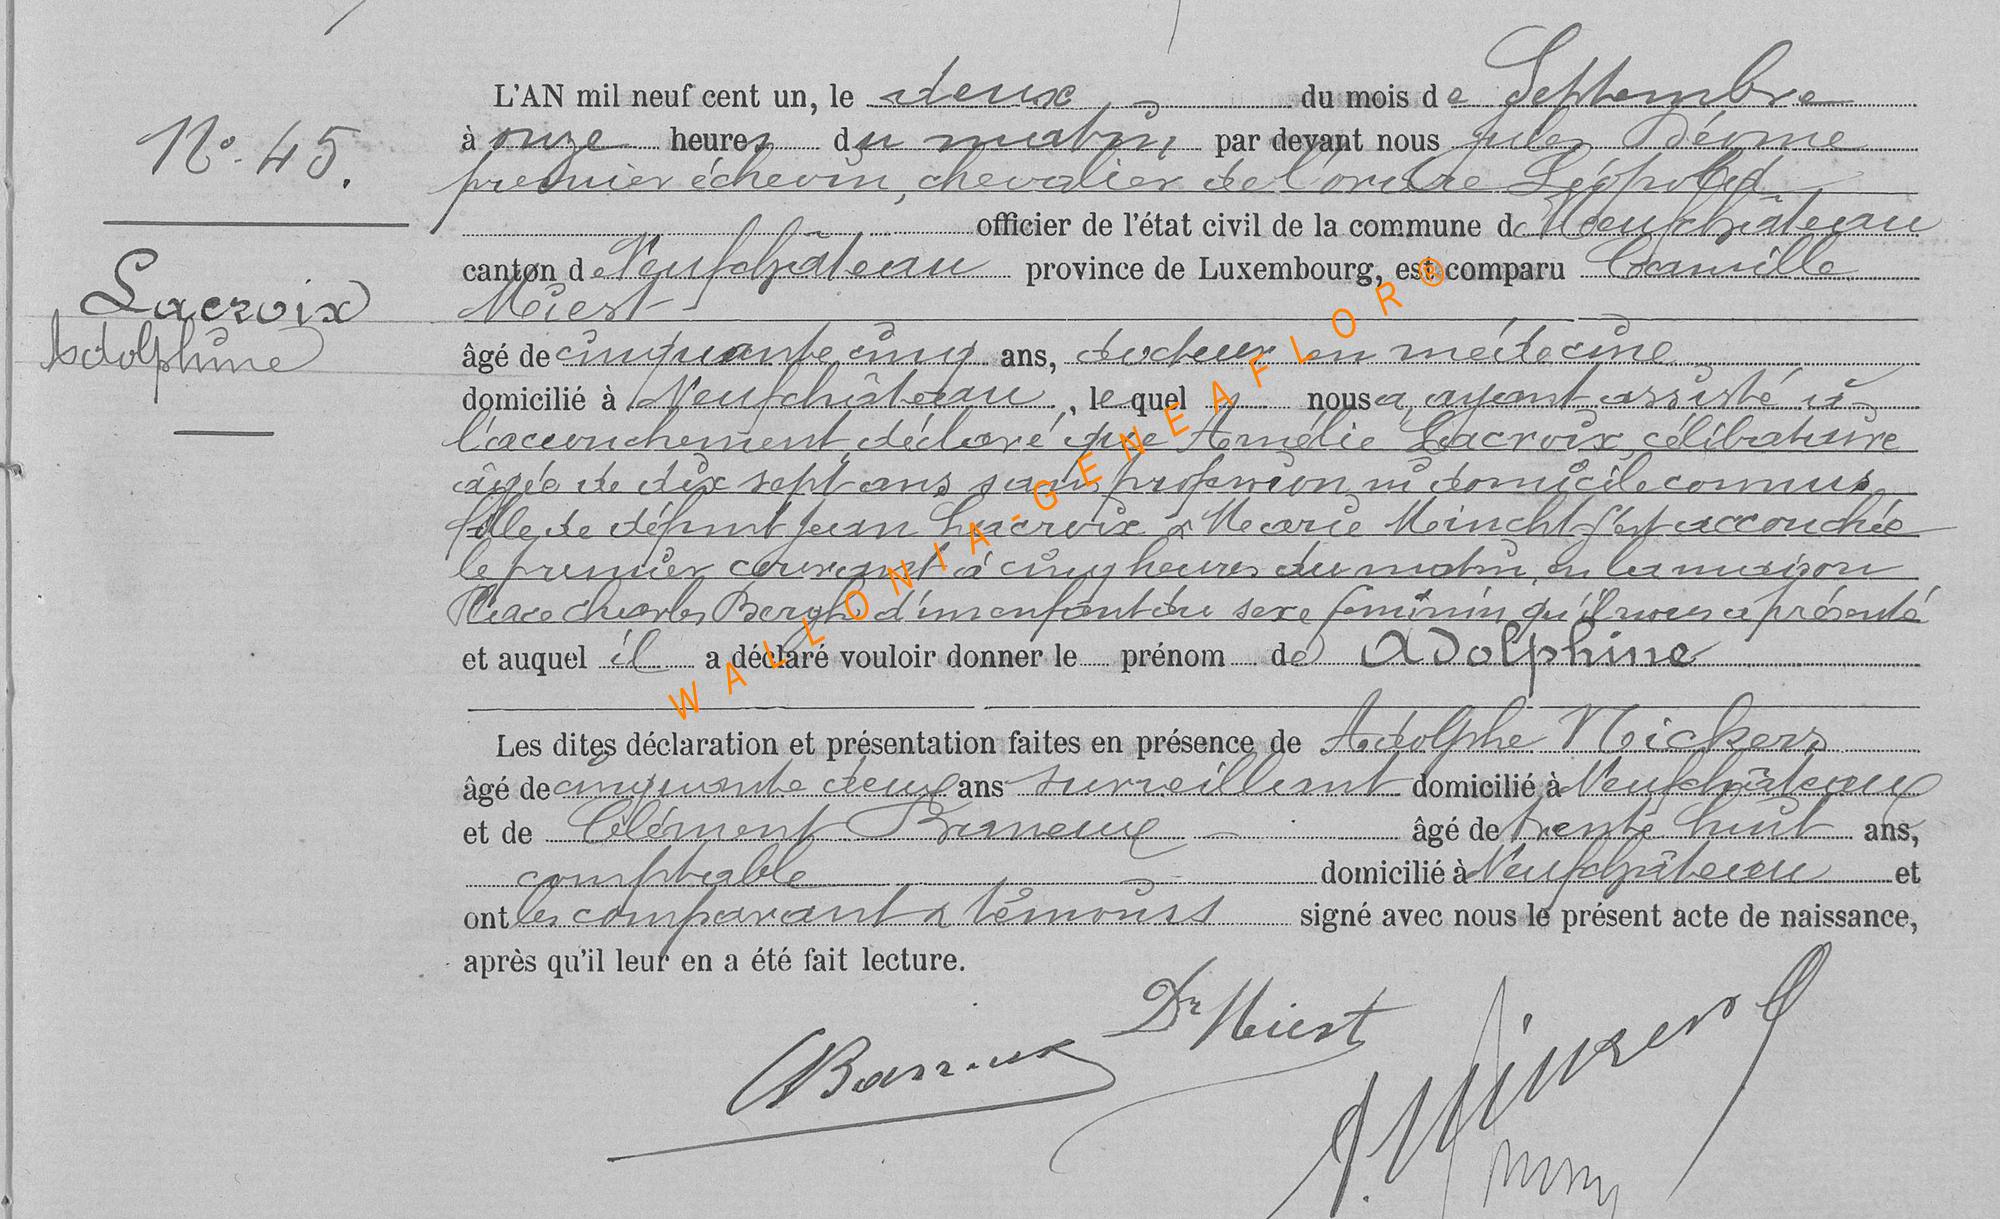 N° 45.
Lacroix
Adolphine
L'AN mil neuf cent un, le deux du mois de Septembre
à onze heures du matin, par devant nous Jules
premier échevin, chevalier de l'ordre Léopold
officier de l'état civil de la commune de Neufchâteau
canton de Neufchâteau province de Luxembourg, est comparu Camille
Miest
âgé de cinquante cinq ans, docteur en médecine
domicilié à Neufchâteau, le quel nous a, ayant assisté à
l'accouchement, déclaré que Amélie Lacroix, célibataire
âgée de dix sept ans, sans profession ni domicile connus,
fille de défunt Jean Lacroix & Marie s'est accouchée
le premier courant à cinq heures du matin, en la maison
Place Charles Bergh, d'un enfant du sexe féminin qu'il nous a présenté
et auquel il a déclaré vouloir donner le prénom de Adolphine
Les dites déclaration et présentation faites en présence de Adolphe Nickers
âgé de cinquante deux ans surveillant domicilié à Neufchâteau
et de Clément âgé de trente huit ans,
comptable domicilié à Neufchâteau et
ont les comparant & témoins signé avec nous le présent acte de naissance,
après qu'il leur en a été fait lecture.
Dr Miest
WALLONIA-GENEAFLOR®